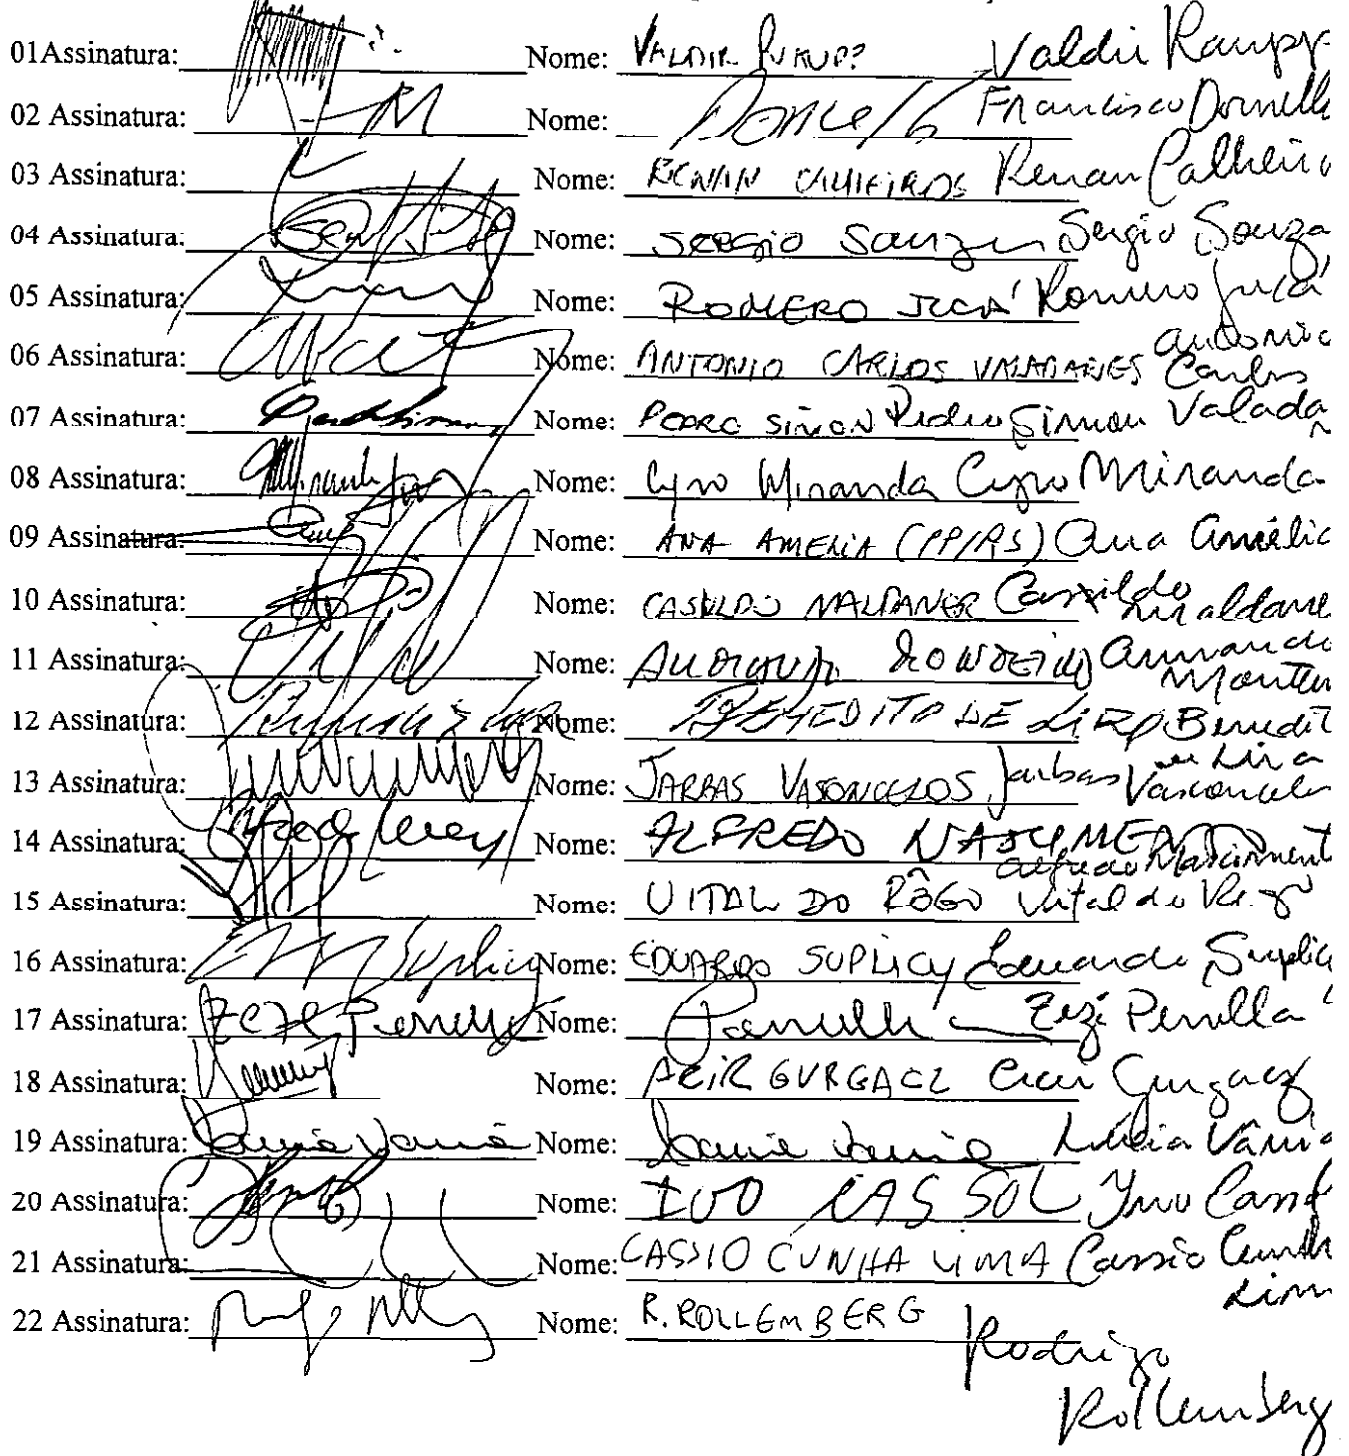 01Assinatura: Nome: VALDIR Valdir Raupp
02 Assinatura: Nome: Francisco Dornelle
03 Assinatura: Nome: RENAN CALHEIROS Renan Calheiro
04 Assinatura: Nome: SERGIO Souza Sergio Souza
05 Assinatura: Nome: ROMERO JUCÁ Romero Jucá
06 Assinatura: Nome: ANTONIO CARLOS VALADARES Antonio Carlos
07 Assinatura: Nome: PEDRO SIMON Pedro Simon Valada
08 Assinatura: Nome: Cyro Miranda Cyro Miranda
09 Assinatura: Nome: ANA AMELIA (PP/RS) Ana Amélia
10 Assinatura: Nome: CASILDO MALDANER Casildo Maldane
11 Assinatura: Nome: Armando Montei
12 Assinatura: Nome: BENEDITO DE LIRA Benedit
13 Assinatura: Nome: JARBAS VASCONCELOS Jarbas de Lira Vasconcelos
14 Assinatura: Nome: ALFREDO NASCIMENTO Alfredo Nascimento
15 Assinatura: Nome: VITAL DO RÊGO Vital do Rêgo
16 Assinatura: Suplicy Nome: EDUARDO SUPLICY Eduardo Suplicy
17 Assinatura: Zeze Perrella Nome: Perrella Zezé Perrella
18 Assinatura: Nome: ACIR GURGACZ Acir Gurgacz
19 Assinatura: Lucia Vania Nome: Lucia Vania Lúcia Vânia
20 Assinatura: Nome: IVO CASSOL Ivo Cassol
21 Assinatura: Nome: CASSIO CUNHA LIMA Cassio Cunha Lima
22 Assinatura: Nome: R. ROLLEMBERG Rodrigo
Rollemberg